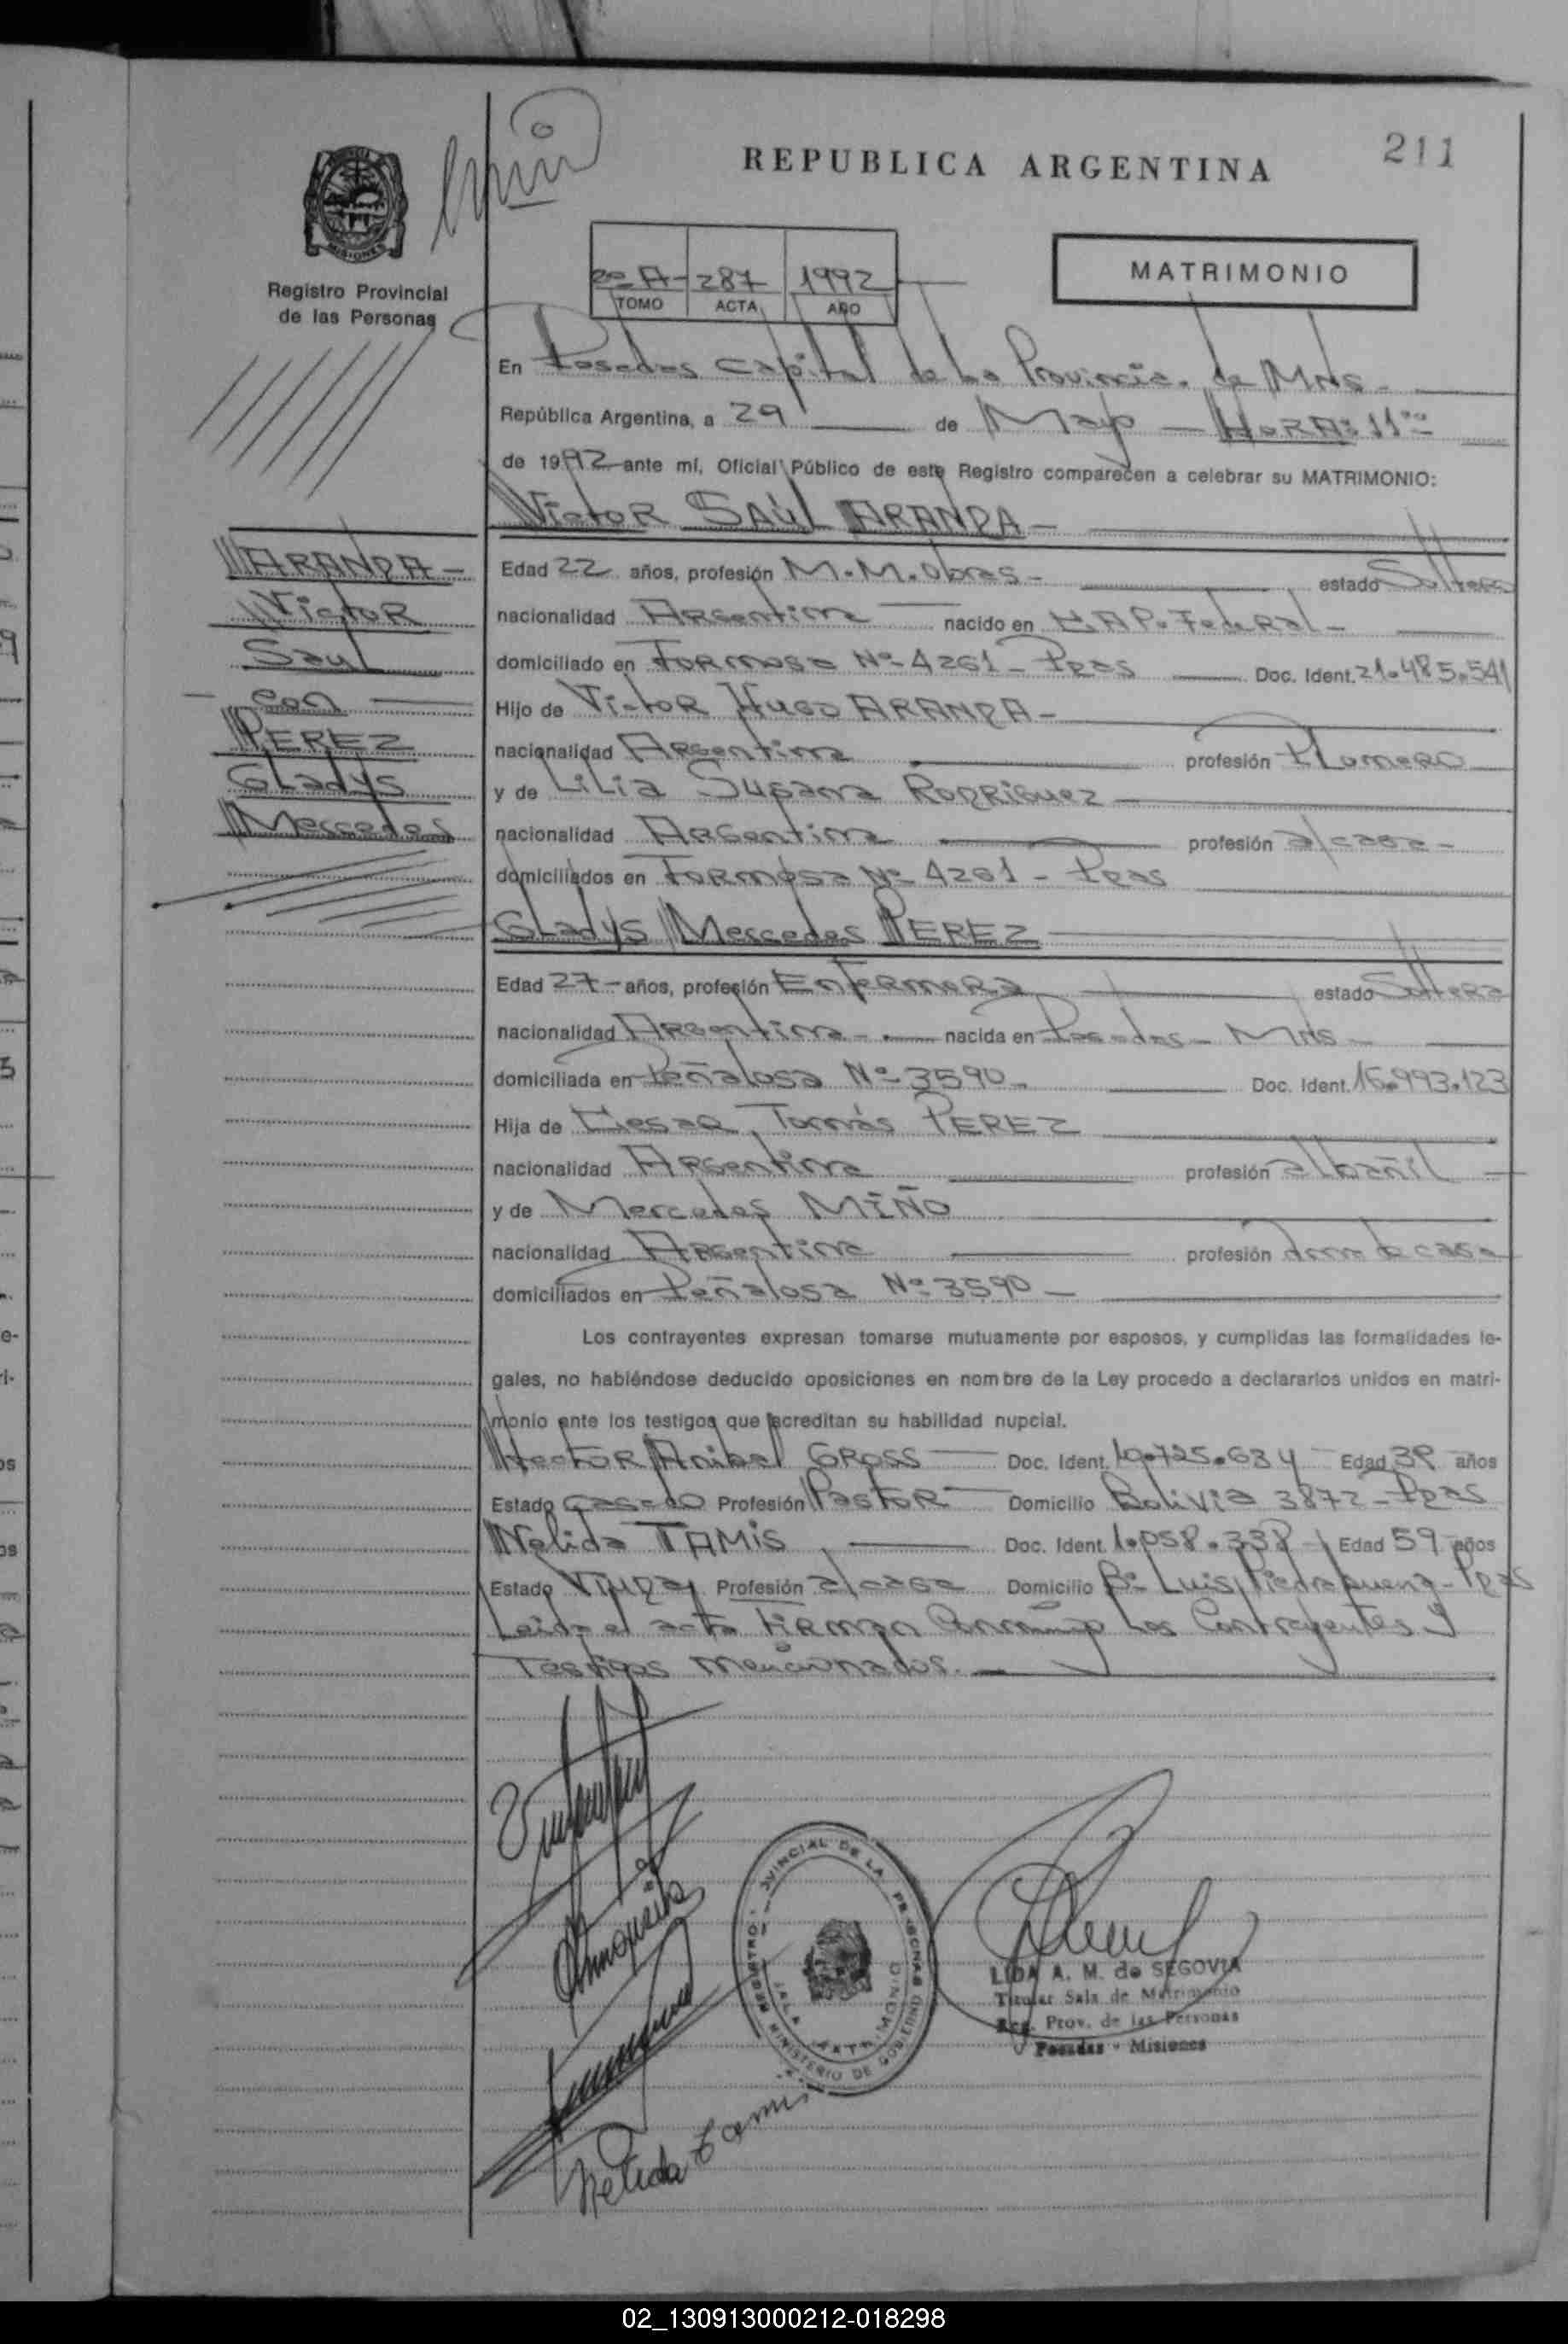 211
REPUBLICA ARGENTINA
MISIONES
Registro Provincial
de las Personas
2º A - 287 1992
TOMO ACTA AÑO
MATRIMONIO
En Posadas Capital de la Provincia de Mnes -
República Argentina, a 29 de Mayo - HORA: 11
de 1992 ante mí, Oficial Público de este Registro comparecen a celebrar su MATRIMONIO:
Victor SAÚL ARANDA -
ARANDA -
Victor
Saul
- con -
PEREZ
Gladys
Mercedes
Edad 22 años, profesión M.M. Obras - estado Soltero
nacionalidad Argentina nacido en CAP. Federal -
domiciliado en Formosa Nº 4261 - Pdas Doc. Ident. 21.485.541
Hijo de Victor Hugo ARANDA -
nacionalidad Argentina profesión Plomero
y de Lilia Susana Rodriguez -
nacionalidad Argentina profesión a/casa -
domiciliados en Formosa Nº 4261 - Pdas
Gladys Mercedes PEREZ
Edad 27 - años, profesión Enfermera estado Soltera
nacionalidad Argentina - nacida en Posadas - Mnes -
domiciliada en Peñalosa Nº 3590 - Doc. Ident. 16.993.123
Hija de Tomás PEREZ
nacionalidad Argentina profesión albañil
y de Mercedes MIÑO
nacionalidad Argentina profesión ama de casa
domiciliados en Peñalosa Nº 3590 -
Los contrayentes expresan tomarse mutuamente por esposos, y cumplidas las formalidades le-
gales, no habiéndose deducido oposiciones en nombre de la Ley procedo a declararlos unidos en matri-
monio ante los testigos que acreditan su habilidad nupcial.
Hector Anibal GROSS Doc. Ident. 10.725.634 Edad 38 años
Estado Casado Profesión Pastor Domicilio Bolivia 3872 - Pdas
Nelida TAMIS Doc. Ident. 1.058.338 Edad 59 años
Estado Viuda Profesión a/casa Domicilio Bº Luis Piedrabuena - Pdas
Leida el acta Firman Conmigo los Contrayentes y
Testigos mencionados.
REGISTRO PROVINCIAL DE LAS PERSONAS
SALA MATRIMONIO
MINISTERIO DE GOBIERNO
LIDA A. M. de SEGOVIA
Titular Sala de Matrimonio
Reg. Prov. de las Personas
Posadas - Misiones
Nelida Tamis
02_130913000212-018298